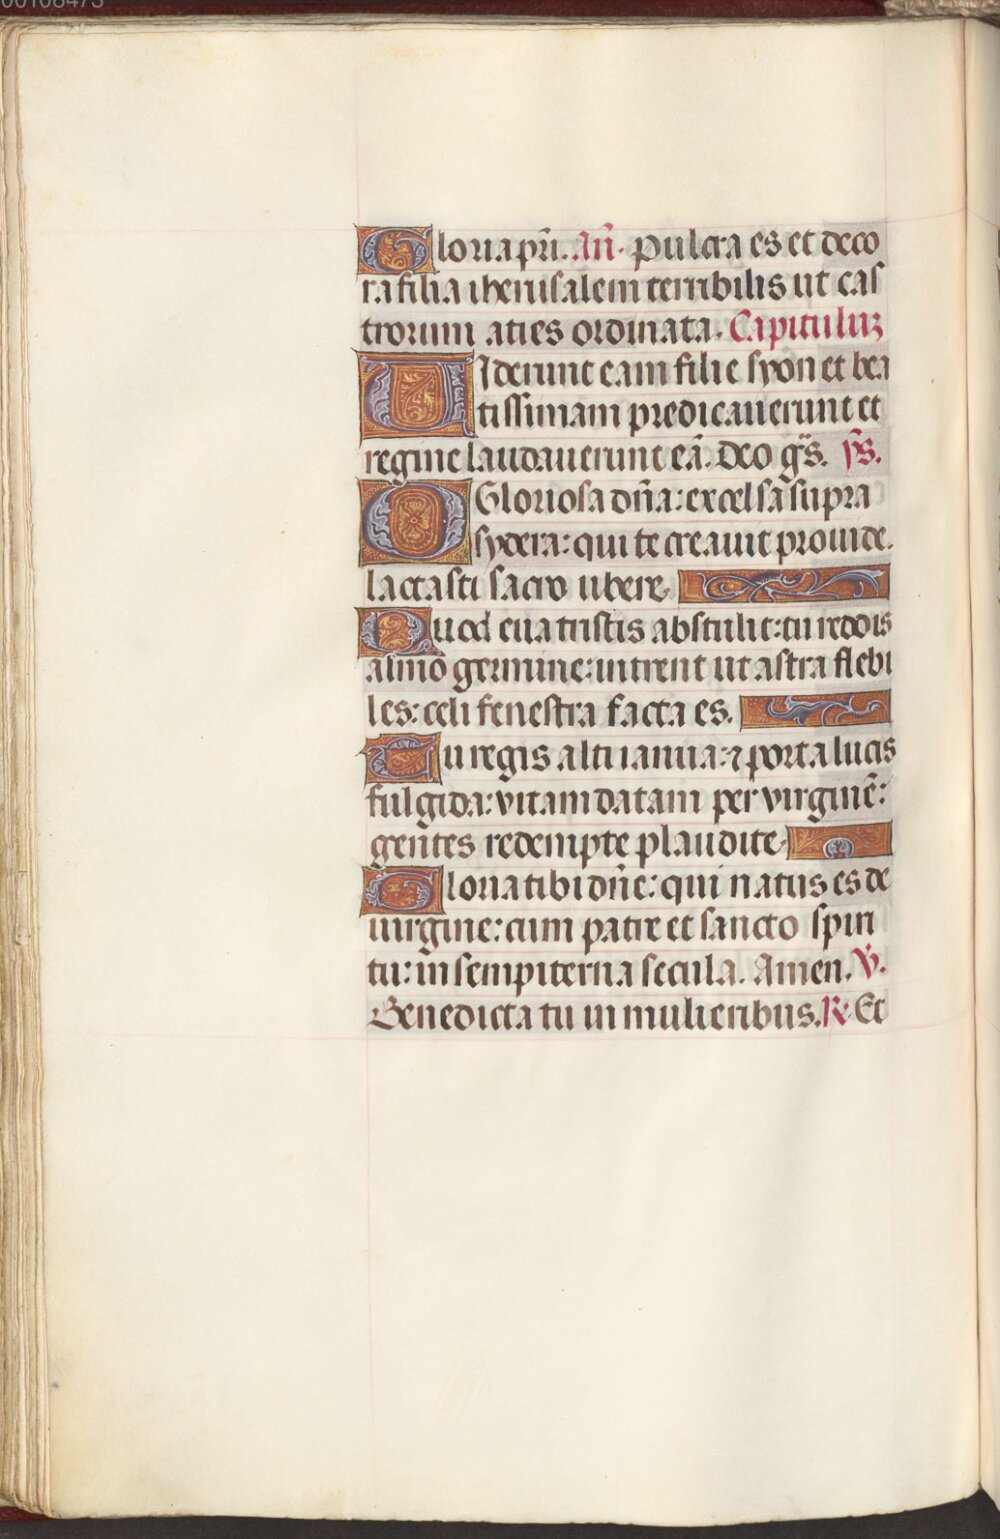 00108473
Gloria pr̄i. Añ. Pulcra es et deco
ra filia iherusalem terribilis ut cas
trorum acies ordinata. Capituluz
Uiderunt eam filie syon et bea
tissimam predicauerunt et
regine laudauerunt eā. Deo gr̄s. ym̄s.
O Gloriosa dn̄a: excelsa supra
sydera: qui te creauit prouide.
lactasti sacro ubere.
Quod eua tristis abstulit: tu reddis
almo germine: intrent ut astra flebi
les: celi fenestra facta es.
Tu regis alti ianua: ⁊ porta lucis
fulgida: vitam datam per virginē:
gentes redempte plaudite.
Gloria tibi dn̄e: qui natus es de
uirgine: cum patre et sancto spiri
tu: in sempiterna secula. Amen. ℣.
Benedicta tu in mulieribus. ℟. Et